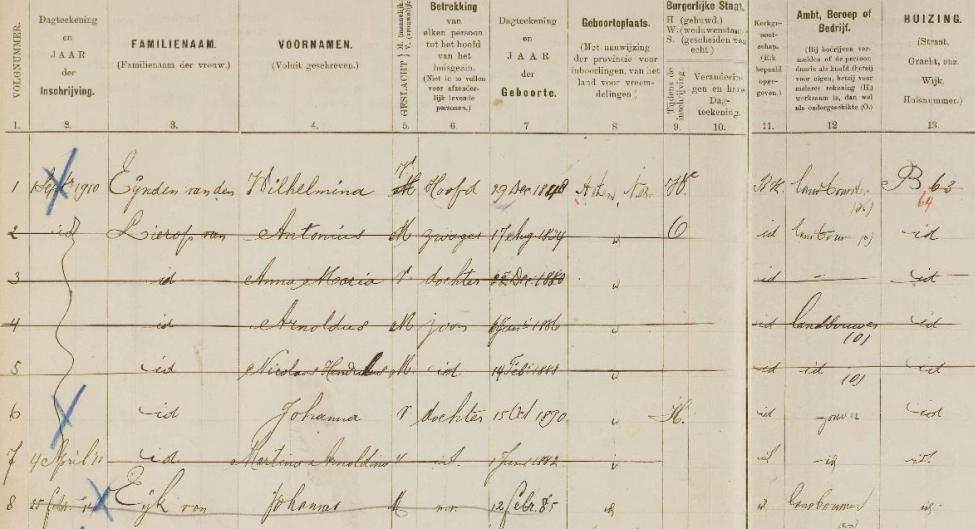 VOLGNUMMER. Dagteekening en JAAR der Inschrijving. FAMILIENAAM. (Familienaam der vrouw.) VOORNAMEN. (Voluit geschreven.) GESLACHT M. (mannelijk.) V. (vrouwelijk.) Betrekking van elken persoon tot het hoofd van het huisgezin. (Niet in te vullen voor afzonderlijk levende personen.) Dagteekening en JAAR der Geboorte. Geboorteplaats. (Met aanwijzing der provincie voor inboorlingen, van het land voor vreemdelingen) Burgerlijke Staat. H (gehuwd.) W. (weduwenstaat) S. (gescheiden van echt) Tijdens de inschrijving Veranderingen en hare Dagteekening. Kerkgenootschap. Ambt, Beroep of Bedrijf. HUIZING. (Straat, Gracht, enz. Wijk, Huisnummer.)
1. 2. 3. 4. 5. 6. 7 8. 9. 10. 11. 12 13.
1 Sept 1910 Eynden van den Wilhelmina V M Hoofd 29 Dec. 1848 W RK landbouwer B, 63 64
2 id Lierop van Antonius M zwager 17 Aug. 1834 O id landbouw (o) id
3 id Anna Maria V dochter 22 Dec. 1880 id id
4 id Arnoldus M zoon 1886 id landbouwer (o) id
5 id Nicolaas Hendrikus M id. 14 Feb. 1888 id id (o) id
6 id Johanna V dochter 15 Oct 1890 H. id zonder id
7 4 April 11 id Martinus Arnoldus id. 1 Juni 1882 id id id.
8 25 febr. Eijk van Johannes M 12 febr. 85 id landbouwer id